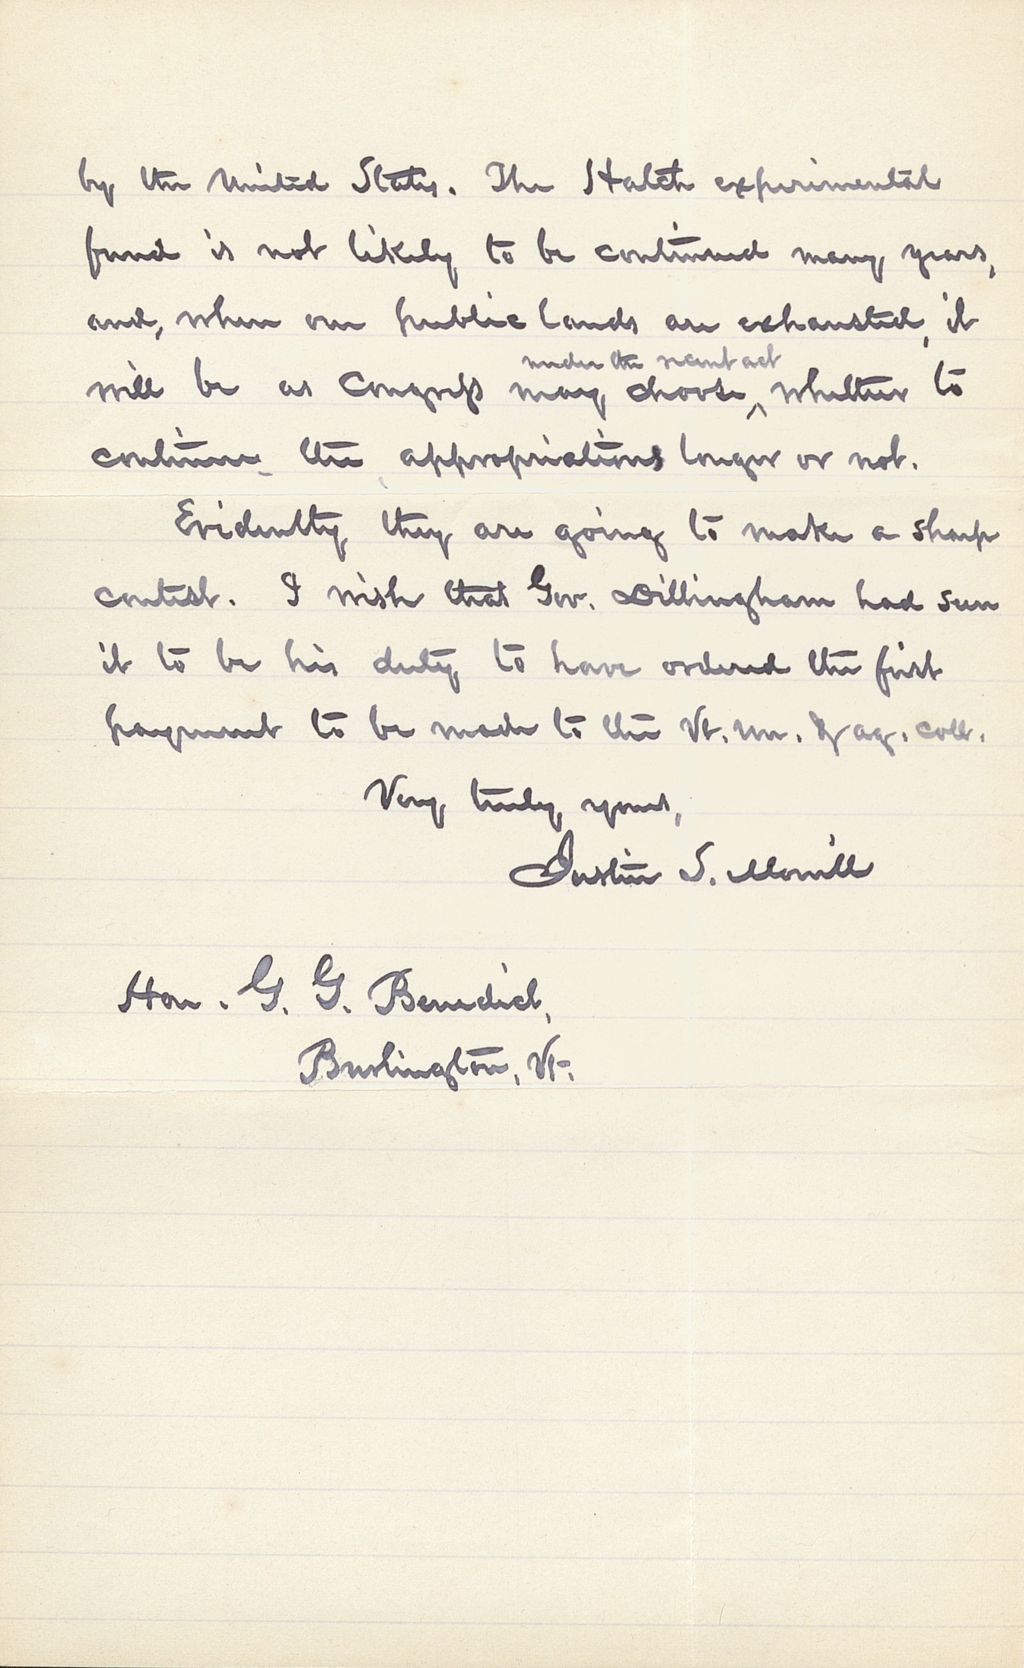 by the United States. The Hatch experimental
fund is not likely to be continued many years,
and, when our public lands are exhausted, it
under the recent act
will be as Congress may choose, ^ whether to
continue the appropriations longer or not.
Evidently they are going to make a sharp
contest. I wish that Gov. Dillingham had seen
it to be his duty to have ordered the first
payment to be made to the Vt. Un. & ag. coll.
Very truly yours,
Justin S. Morrill
Hon. G. G. Benedict,
Burlington, Vt.